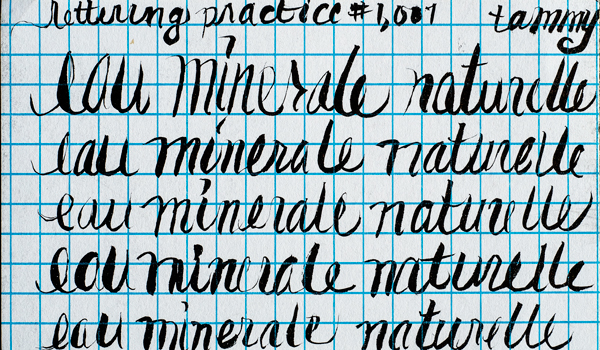 lettering practice #1,001 tammy
eau minerale naturelle
eau minerale naturelle
eau minerale naturelle
eau minerale naturelle
eau minerale naturelle